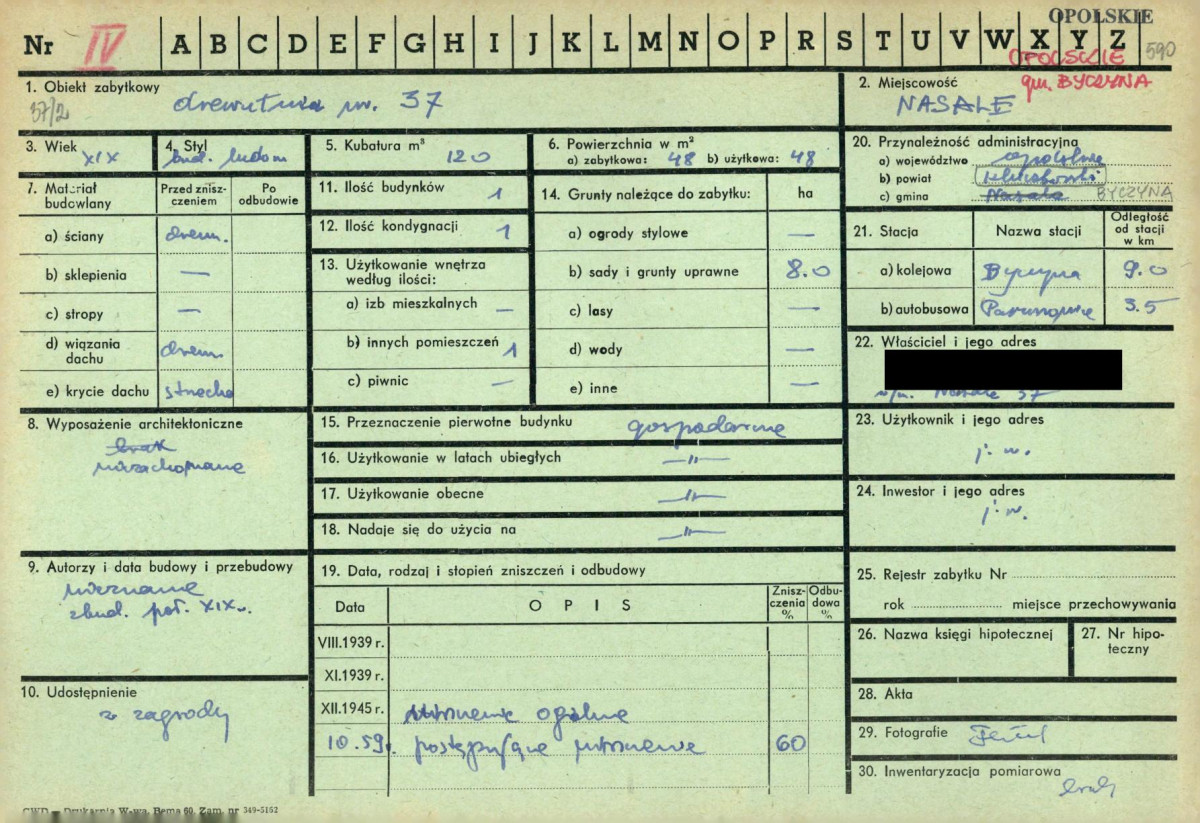 OPOLSKIE
Nr IV A B C D E F G H I J K L M N O P R S T U V W X Y Z 590
OPOLSKIE
gm. BYCZYNA
1. Obiekt zabytkowy
37/2
drewutnia nr. 37
2. Miejscowość
NASALE
3. Wiek XIX
4. Styl
bud. ludow
5. Kubatura m³ 120
6. Powierzchnia w m²
a) zabytkowa: 48 b) użytkowa: 48
20. Przynależność administracyjna
a) województwo opolskie
b) powiat kluczborski
c) gmina Nasale BYCZYNA
7. Materiał budowlany
Przed zniszczeniem
Po odbudowie
a) ściany drewn.
b) sklepienia —
c) stropy —
d) wiązania dachu drewn.
e) krycie dachu strzecha
11. Ilość budynków 1
12. Ilość kondygnacji 1
13. Użytkowanie wnętrza według ilości:
a) izb mieszkalnych —
b) innych pomieszczeń 1
c) piwnic —
14. Grunty należące do zabytku: ha
a) ogrody stylowe —
b) sady i grunty uprawne 8.0
c) lasy —
d) wody —
e) inne —
21. Stacja Nazwa stacji Odległość od stacji w km
a) kolejowa Byczyna 9.0
b) autobusowa 3.5
22. Właściciel i jego adres
Nasale 37
8. Wyposażenie architektoniczne
brak
niezachowane
15. Przeznaczenie pierwotne budynku gospodarcze
16. Użytkowanie w latach ubiegłych —"—
17. Użytkowanie obecne —"—
18. Nadaje się do użycia na —"—
23. Użytkownik i jego adres
j. w.
24. Inwestor i jego adres
j. w.
9. Autorzy i data budowy i przebudowy
nieznane
zbud. poł. XIX w.
19. Data, rodzaj i stopień zniszczeń i odbudowy
Data OPIS Zniszczenia % Odbudowa %
VIII.1939 r.
XI.1939 r.
XII.1945 r. zniszczenie ogólne
10.59. postępujące zniszczenie 60
25. Rejestr zabytku Nr
rok miejsce przechowywania
26. Nazwa księgi hipotecznej
27. Nr hipoteczny
10. Udostępnienie
z zagrody
28. Akta
29. Fotografie
30. Inwentaryzacja pomiarowa
brak
CWD — Drukarnia W-wa, Bema 60, Zam. nr 349-5162